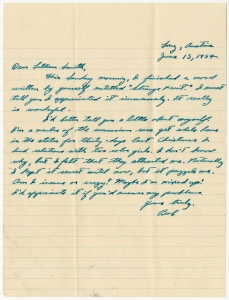 Linz, Austria
June 13, 1954
Dear Lillian Smith,
This Sunday morning, I finished a novel
written by yourself entitled "Strange Fruit". I must
tell you I appreciated it immensely. It really
is wonderful.
I'd better tell you a little about myself.
I'm a
in the states for thirty days last Christmas I
had relations with two
why, but I felt that they attracted me. Naturally
I kept it secret until now, but it puzzles me.
Am I insane or crazy? Maybe I'm mixed up!
I'd appreciate it if you'd answer my problem.
Yours truly,
Bob